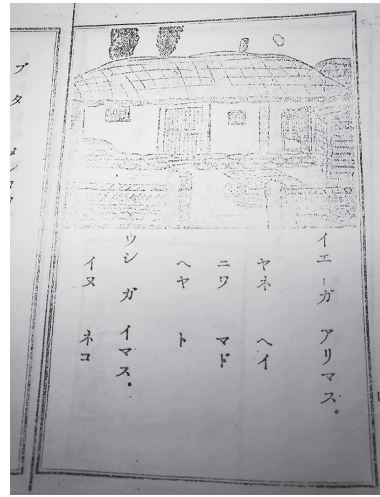 イエーガ アリマス。
ヤネ ヘイ
ニワ マド
ヘヤ ト
ウシ ガ イマス。
イヌ ネコ
ブタ